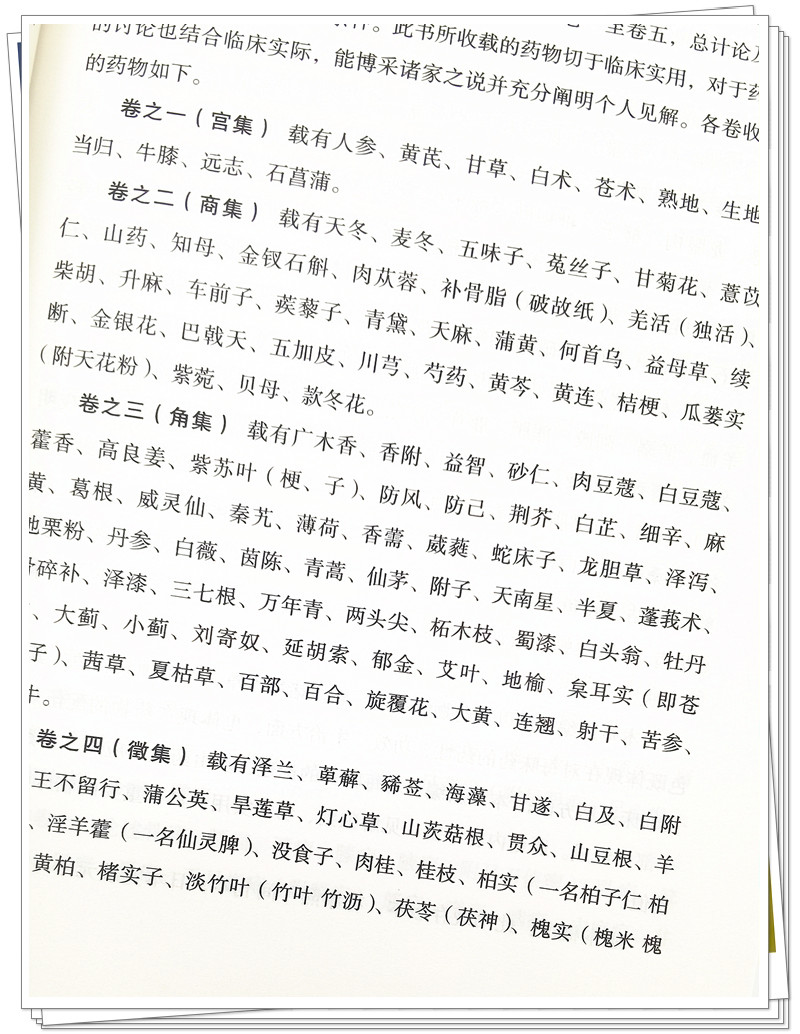 至卷五，总计论及
的讨论也结合临床实际，能博采诸家之说并充分阐明个人见解。各卷收
此书所收载的药物切于临床实用，对于药
的药物如下。
卷之一（宫集） 载有人参、黄芪、甘草、白术、苍术、熟地、生地
当归、牛膝、远志、石菖蒲。
卷之二（商集） 载有天冬、麦冬、五味子、菟丝子、甘菊花、薏苡
仁、山药、知母、金钗石斛、肉苁蓉、补骨脂（破故纸）、羌活（独活）、
柴胡、升麻、车前子、蒺藜子、青黛、天麻、蒲黄、何首乌、益母草、续
断、金银花、巴戟天、五加皮、川芎、芍药、黄芩、黄连、桔梗、瓜蒌实
（附天花粉）、紫菀、贝母、款冬花。
卷之三（角集） 载有广木香、香附、益智、砂仁、肉豆蔻、白豆蔻、
藿香、高良姜、紫苏叶（梗、子）、防风、防己、荆芥、白芷、细辛、麻
黄、葛根、威灵仙、秦艽、薄荷、香薷、葳蕤、蛇床子、龙胆草、泽泻、
地栗粉、丹参、白薇、茵陈、青蒿、仙茅、附子、天南星、半夏、蓬莪术、
骨碎补、泽漆、三七根、万年青、两头尖、柘木枝、蜀漆、白头翁、牡丹
、大蓟、小蓟、刘寄奴、延胡索、郁金、艾叶、地榆、枲耳实（即苍
子）、茜草、夏枯草、百部、百合、旋覆花、大黄、连翘、射干、苦参、
牛。
卷之四（徵集） 载有泽兰、萆薢、豨莶、海藻、甘遂、白及、白附
王不留行、蒲公英、旱莲草、灯心草、山茨菇根、贯众、山豆根、羊
、淫羊藿（一名仙灵脾）、没食子、肉桂、桂枝、柏实（一名柏子仁 柏
黄柏、楮实子、淡竹叶（竹叶 竹沥）、茯苓（茯神）、槐实（槐米 槐